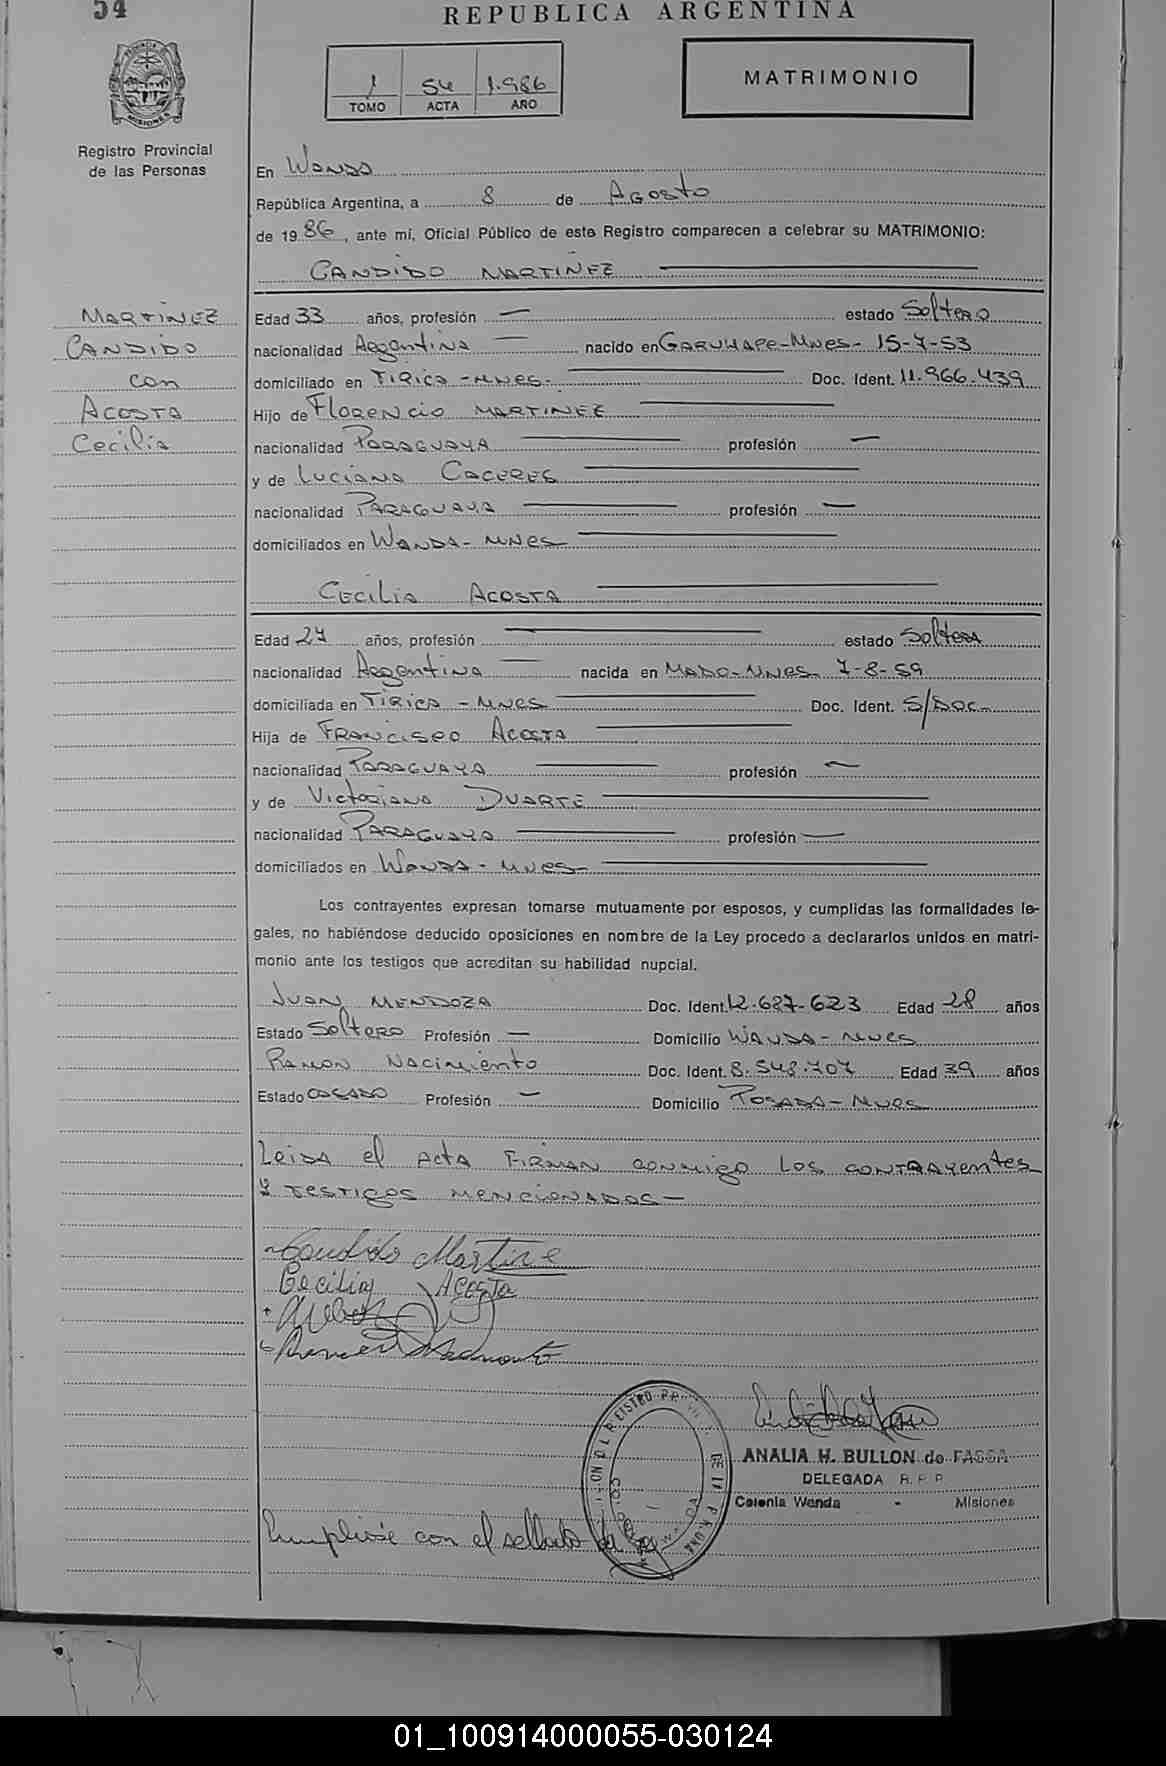 54
REPUBLICA ARGENTINA
1 54 1.986
TOMO ACTA AÑO
MATRIMONIO
PROVINCIA DE
MISIONES
Registro Provincial
de las Personas
En Wanda
República Argentina, a 8 de Agosto
de 1986, ante mi, Oficial Público de este Registro comparecen a celebrar su MATRIMONIO:
CANDIDO MARTIÑEZ
MARTINEZ
CANDIDO
con
ACOSTA
Cecilia
Edad 33 años, profesión — estado Soltero
nacionalidad Argentina — nacido en GARUHAPE-Mnes- 15-7-53
domiciliado en TIRICA-MNES- Doc. Ident. 11.966.439
Hijo de Florencio MARTINEZ
nacionalidad PARAGUAYA profesión —
y de Luciana CACERES
nacionalidad PARAGUAYA profesión —
domiciliados en WANDA-MNES
CECILIA ACOSTA
Edad 27 años, profesión — estado Soltera
nacionalidad Argentina — nacida en MADO-MNES- 7-8-59
domiciliada en TIRICA-MNES Doc. Ident. S/DOC-
Hija de FRANCISCO ACOSTA
nacionalidad PARAGUAYA profesión —
y de Victoriana DUARTE
nacionalidad PARAGUAYA profesión —
domiciliados en WANDA-MNES-
Los contrayentes expresan tomarse mutuamente por esposos, y cumplidas las formalidades le-
gales, no habiéndose deducido oposiciones en nombre de la Ley procedo a declararlos unidos en matri-
monio ante los testigos que acreditan su habilidad nupcial.
JUAN MENDOZA Doc. Ident. 12.687-623 Edad 28 años
Estado Soltero Profesión — Domicilio WANDA-MNES
RAMON NACIMIENTO Doc. Ident. 8.548.707 Edad 39 años
Estado CASADO Profesión — Domicilio POSADA-MNES
Leida el Acta FIRMAN conmigo LOS CONTRAYENTES
Y TESTIGOS MENCIONADOS—
Candido Martine
Cecilia Acosta
ANALIA H. BULLON de FASSA
DELEGADA R. P. P.
Colonia Wanda - Misiones
Cumpliose con el sellado de ley
01_100914000055-030124